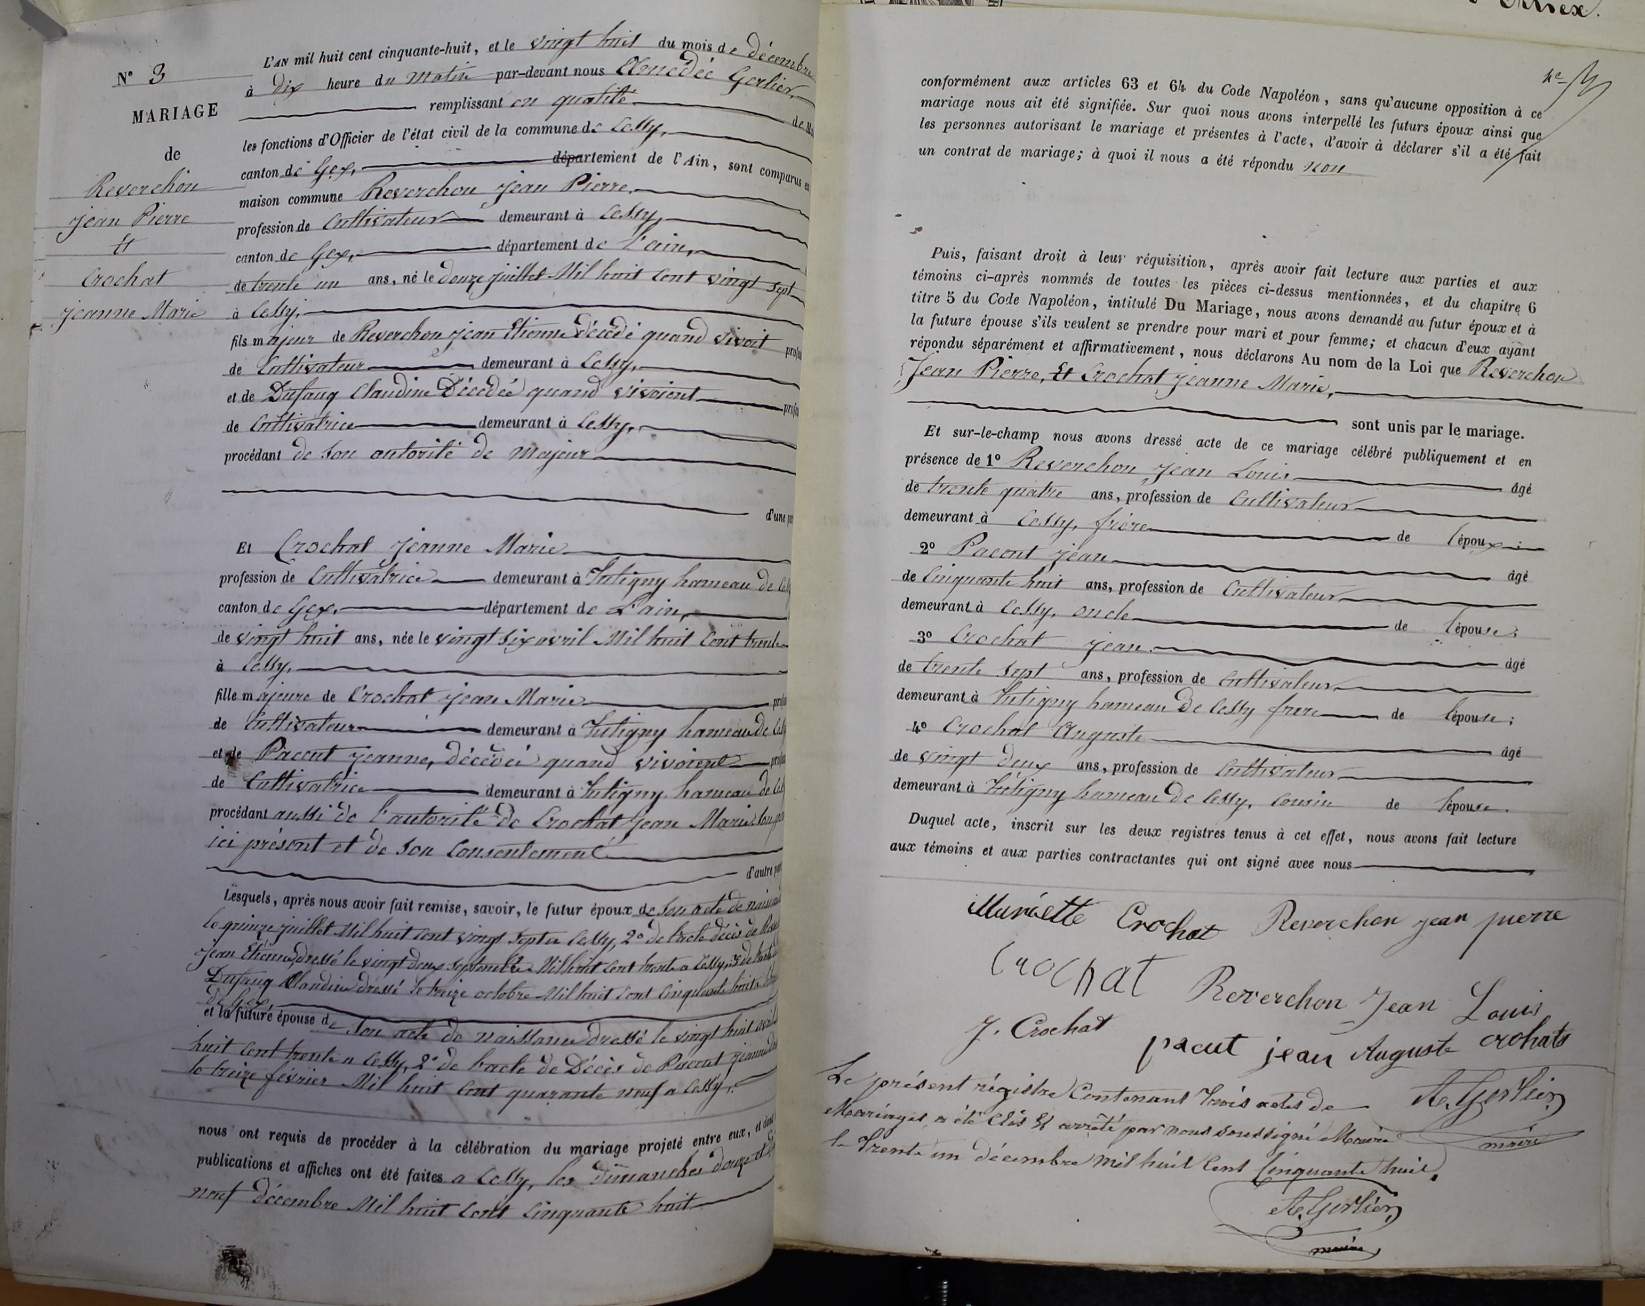 N° 3
MARIAGE
de
Reverchon
jean Pierre
Et
Crochat
jeanne Marie
L'AN mil huit cent cinquante-huit, et le vingt huit du mois de décembre
à dix heure du matin par-devant nous Amédée Gerlier
remplissant en qualité de
les fonctions d'Officier de l'état civil de la commune de Cessy,
canton de Gex, département de l'Ain, sont comparus en
maison commune Reverchon jean Pierre
profession de Cultivateur demeurant à Cessy,
canton de Gex, département de l'ain,
de trente un ans, né le douze juillet Mil huit cent vingt sept
à Cessy,
fils majeur de Reverchon jean Etienne décédé quand vivoit
de Cultivateur demeurant à Cessy,
et de Dufaug Claudine Décédée quand vivoient
de Cultivatrice demeurant à Cessy,
procédant de son autorité de majeur
d'une
Et Crochat jeanne Marie
profession de Cultivatrice demeurant à Tutigny hameau de
canton de Gex, département de L'ain,
de vingt huit ans, née le vingt six avril Mil huit cent trente
à Cessy,
fille majeure de Crochat jean Marie
de Cultivateur demeurant à Tutigny hameau de
et de Pacout jeanne, décédée quand vivoient
de Cultivatrice demeurant à Tutigny hameau de
procédant aussi de l'autorité de Crochat jean Marie son
ici présent et de son consentement
d'autre
Lesquels, après nous avoir fait remise, savoir, le futur époux de son acte de
le quinze juillet Mil huit cent vingt sept a Cessy, 2° de l'acte décès de
jean Etienne dressé le vingt deux septembre Mil huit cent trente a Cessy, 3° de
Dufaug Claudine dressé le treize octobre Mil huit cent cinquante huit a
de Gex,
et la future épouse de son acte de naissance dressé le vingt huit avril
huit cent trente a Cessy, 2° de l'acte de Décès de Pacout jeanne
le treize février Mil huit cent quarante neuf a Cessy,
nous ont requis de procéder à la célébration du mariage projeté entre eux, et dont
publications et affiches ont été faites a Cessy, les dimanches douze et
neuf décembre Mil huit cent cinquante huit
conformément aux articles 63 et 64 du Code Napoléon, sans qu'aucune opposition à ce
mariage nous ait été signifiée. Sur quoi nous avons interpellé les futurs époux ainsi que
les personnes autorisant le mariage et présentes à l'acte, d'avoir à déclarer s'il a été fait
un contrat de mariage; à quoi il nous a été répondu non
Puis, faisant droit à leur réquisition, après avoir fait lecture aux parties et aux
témoins ci-après nommés de toutes les pièces ci-dessus mentionnées, et du chapitre 6
titre 5 du Code Napoléon, intitulé Du Mariage, nous avons demandé au futur époux et à
la future épouse s'ils veulent se prendre pour mari et pour femme; et chacun d'eux ayant
répondu séparément et affirmativement, nous déclarons Au nom de la Loi que Reverchon
Jean Pierre, Et Crochat jeanne Marie,
sont unis par le mariage.
Et sur-le-champ nous avons dressé acte de ce mariage célébré publiquement et en
présence de 1° Reverchon jean Louis âgé
de trente quatre ans, profession de Cultivateur
demeurant à Cessy, frère de l'époux;
2° Pacout jean âgé
de Cinquante huit ans, profession de Cultivateur
demeurant à Cessy, oncle de l'épouse;
3° Crochat jean âgé
de trente sept ans, profession de Cultivateur
demeurant à Tutigny hameau de Cessy frere de l'épouse;
4° Crochat Auguste âgé
de vingt deux ans, profession de Cultivateur
demeurant à Tutigny hameau de Cessy, cousin de l'épouse.
Duquel acte, inscrit sur les deux registres tenus à cet effet, nous avons fait lecture
aux témoins et aux parties contractantes qui ont signé avec nous
Mariette Crochat Reverchon jean pierre
Crochat Reverchon Jean Louis
J. Crochat pacut jean Auguste crohats
Le présent régistre Contenant trois actes de A. Gerlier
Mariages, a été Clos Et arrêté par nous soussigné Maire maire
le trente un décembre mil huit Cent Cinquante huit.
A. Gerlier
maire